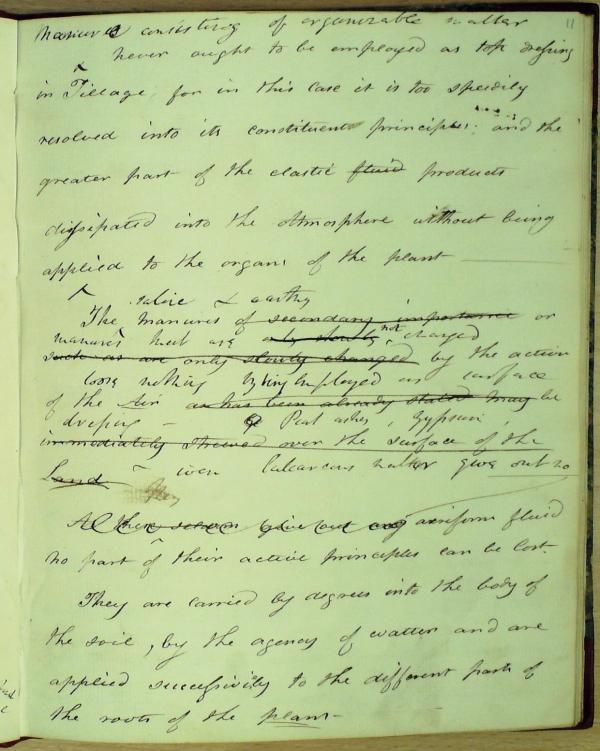 11
Manures consisting of organizable matter
never ought to be employed as top dressing
in Tillage; for in this case it is too speedily
resolved into its constituent principles; and the
greater part of the elastic fluid products
dissipated into the Atmosphere without being
applied to the organs of the plant
saline & earthy
The manures of secondary importance or
manures that are only slowly not changed
such as are only slowly changed by the action
loose nothing by being employed as surface
of the Air as has been already stated may be
dressing - Peat ashes, Gypsum,
immediately strewed over the surface of the
Land even Calcareous matter give out no
give out any aeriform fluid
no part of their active principles can be lost
They are carried by degrees into the body of
the soil, by the agency of watter and are
applied successively to the different parts of
the roots of the plant-